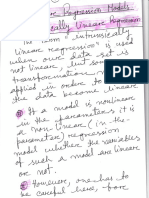 Regression Models
Intrinsically Linear Regression
The term "intrinsically
linear regression" is used
when our data set is
not linear, but some
transformation
applied in order
the data become linear
If a model is nonlinear
in the parameters it is
a non linear (in the
parameter) regression
model whether the variables
of such a model are linear
or not.
However, one has to
be careful here, for